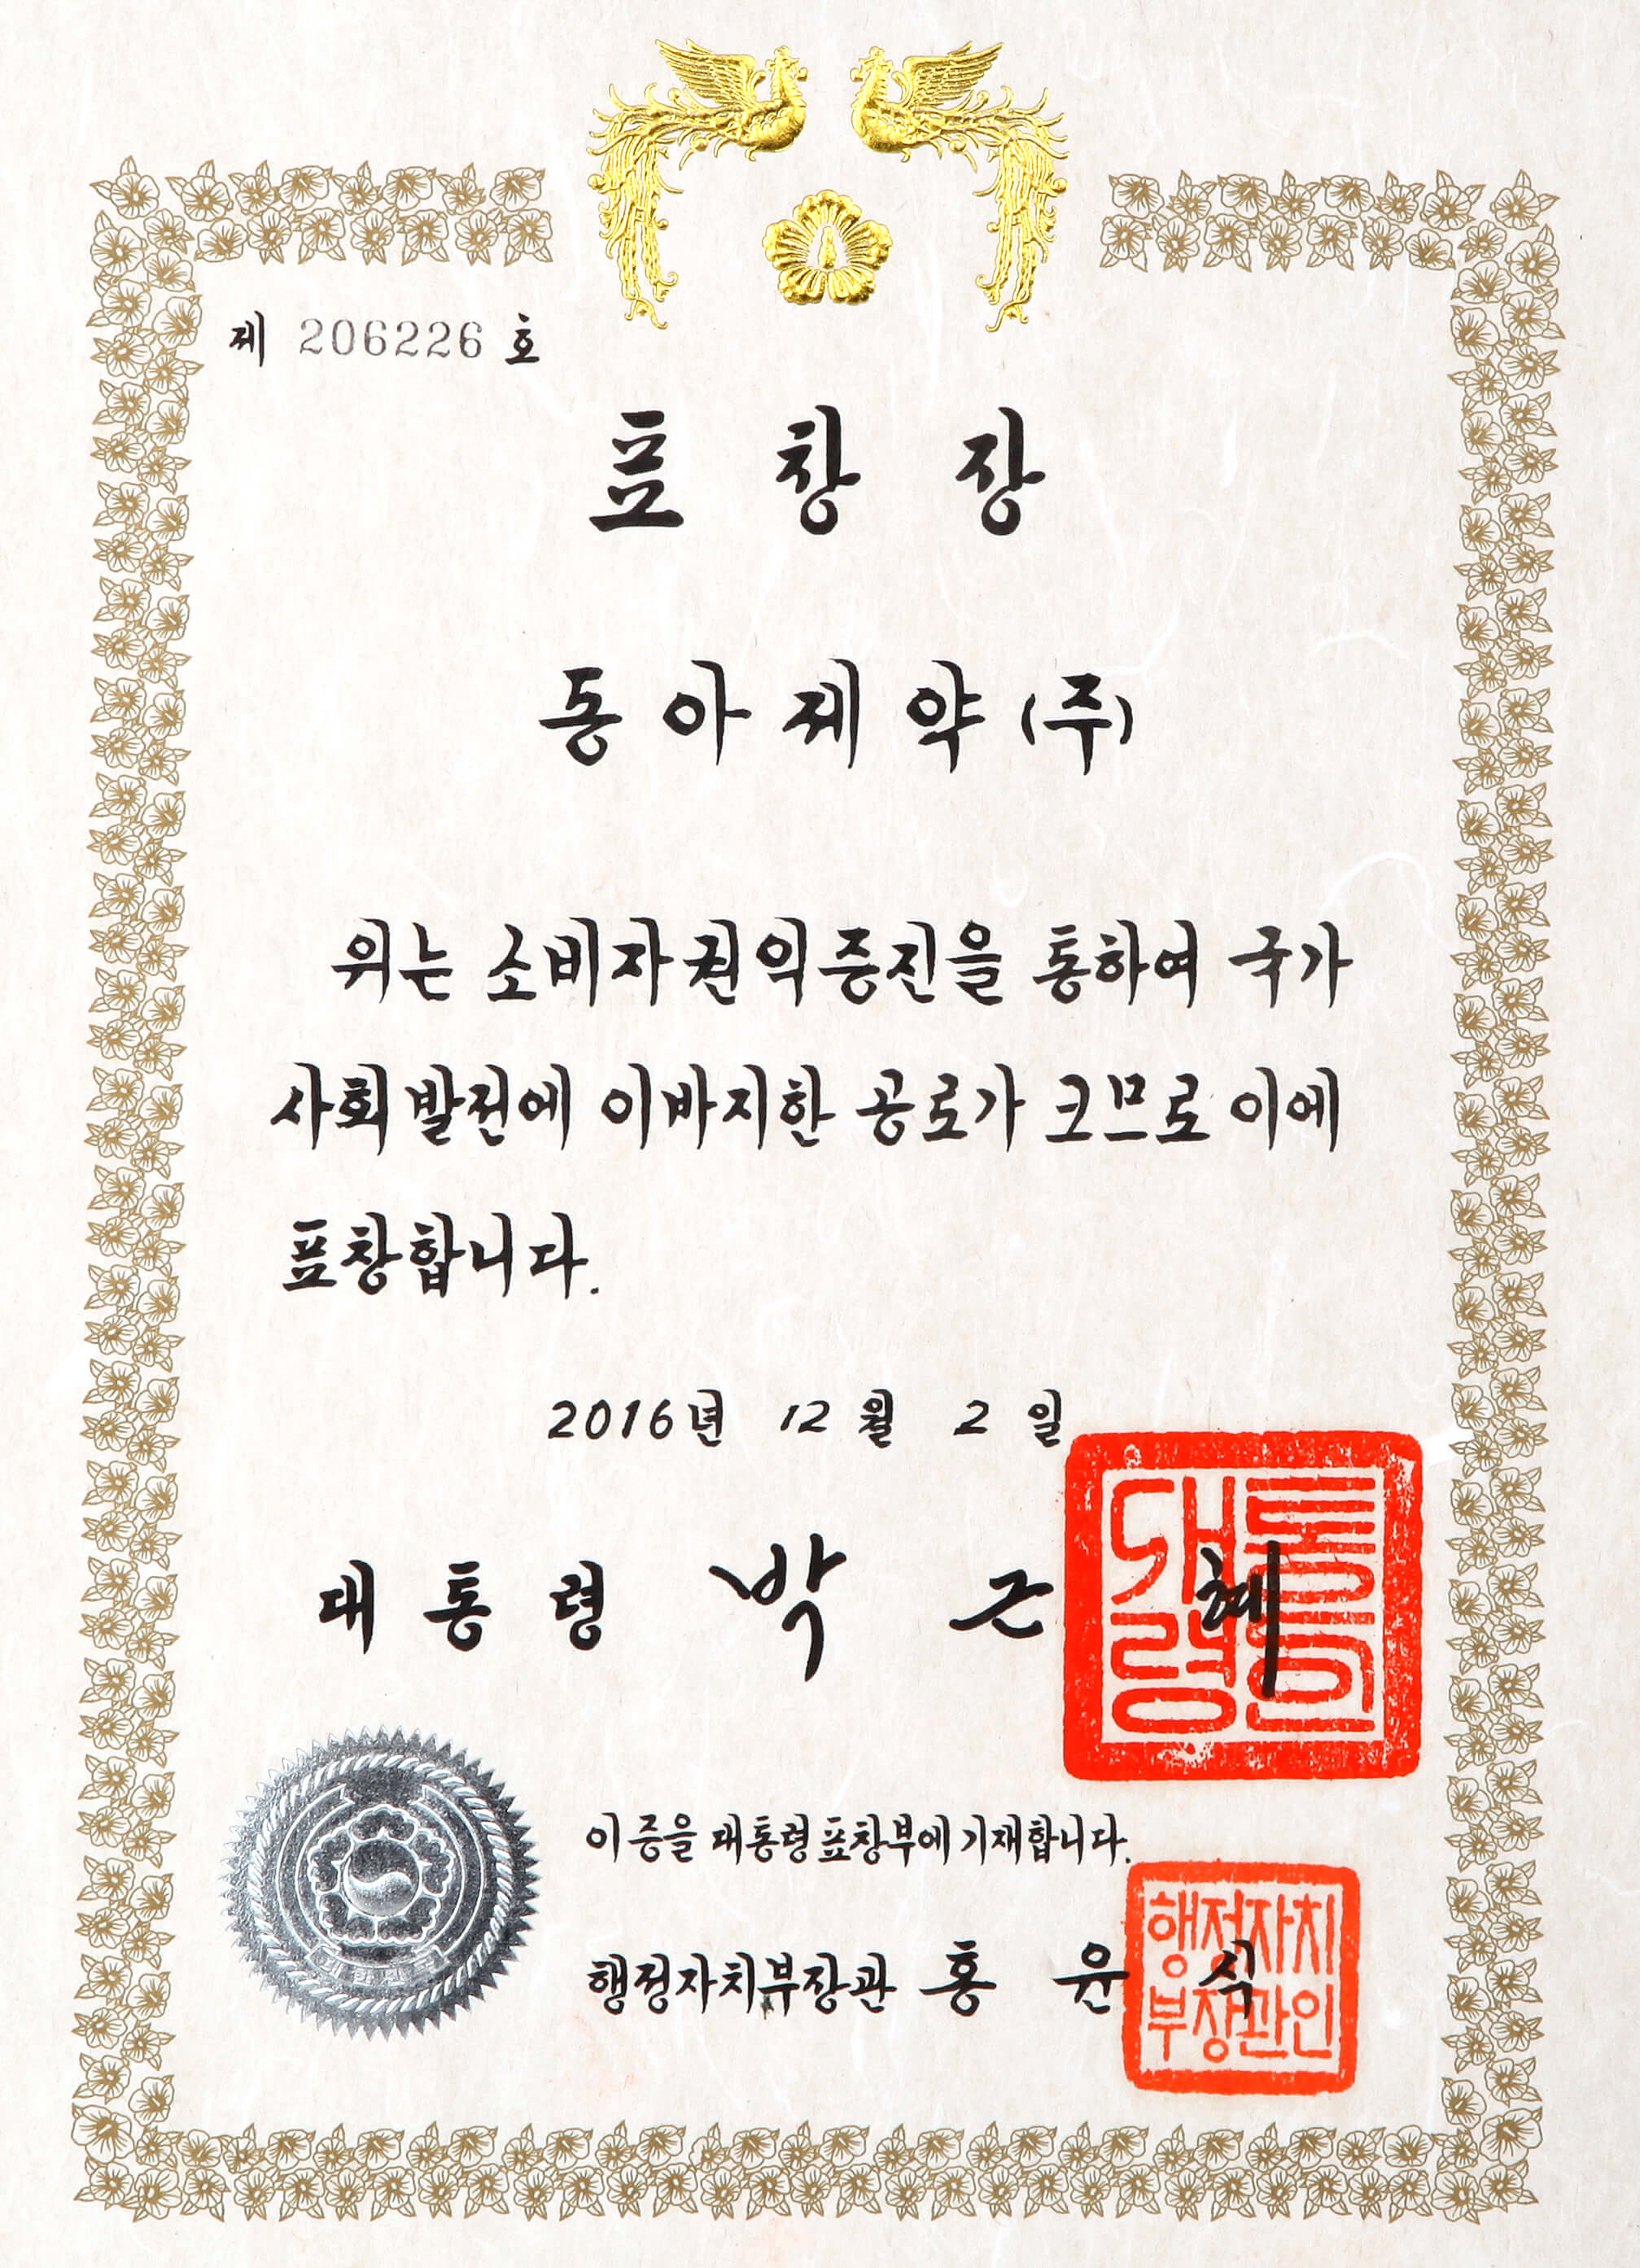 제 206226 호
표 창 장
동 아 제 약 (주)
위는 소비자 권익증진을 통하여 국가
사회 발전에 이바지한 공로가 크므로 이에
표창합니다.
2016년 12 월 2 일
대 통 령 박 근 혜
이 증을 대통령 표창부에 기재합니다.
행정자치부장관 홍 윤 식
행정자치
부장관인